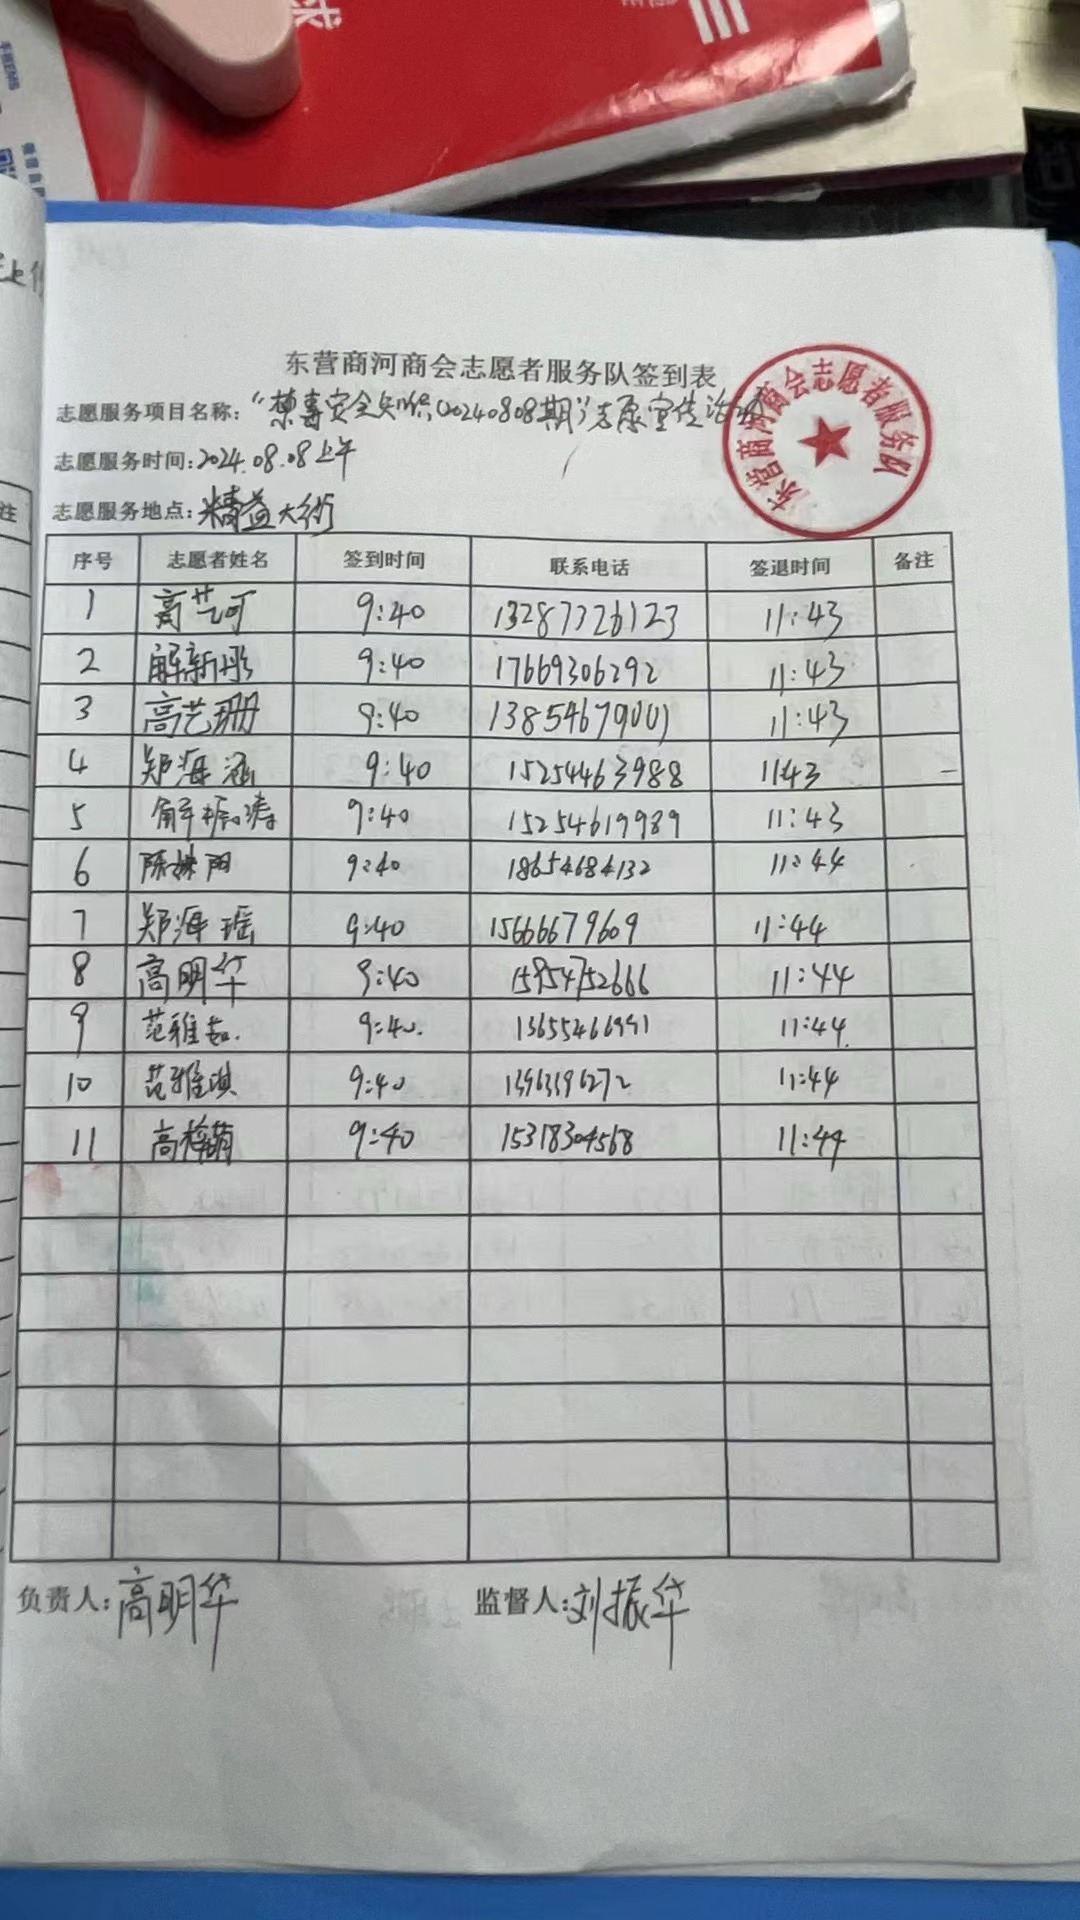 东营商河商会志愿者服务队签到表
志愿服务项目名称:“禁毒安全知识(20240808期)”志愿宣传活动
志愿服务时间:2024.08.08上午
志愿服务地点:精益大街
东营商河商会志愿者服务队
序号 志愿者姓名 签到时间 联系电话 签退时间 备注
1 高艺可 9:40 13287326123 11:43
2 解新彤 9:40 17669306292 11:43
3 高艺珊 9:40 13854679001 11:43
4 郑海涵 9:40 15254463988 11:43
5 解振涛 9:40 15254619989 11:43
6 陈姝阳 9:40 18654684132 11:44
7 郑海瑶 9:40 15666679609 11:44
8 高明华 9:40 15954752666 11:44
9 范雅茹 9:40 11:44
10 范雅琪 9:40 11:44
11 高梓萌 9:40 15318304568 11:44
负责人:高明华 监督人:刘振华